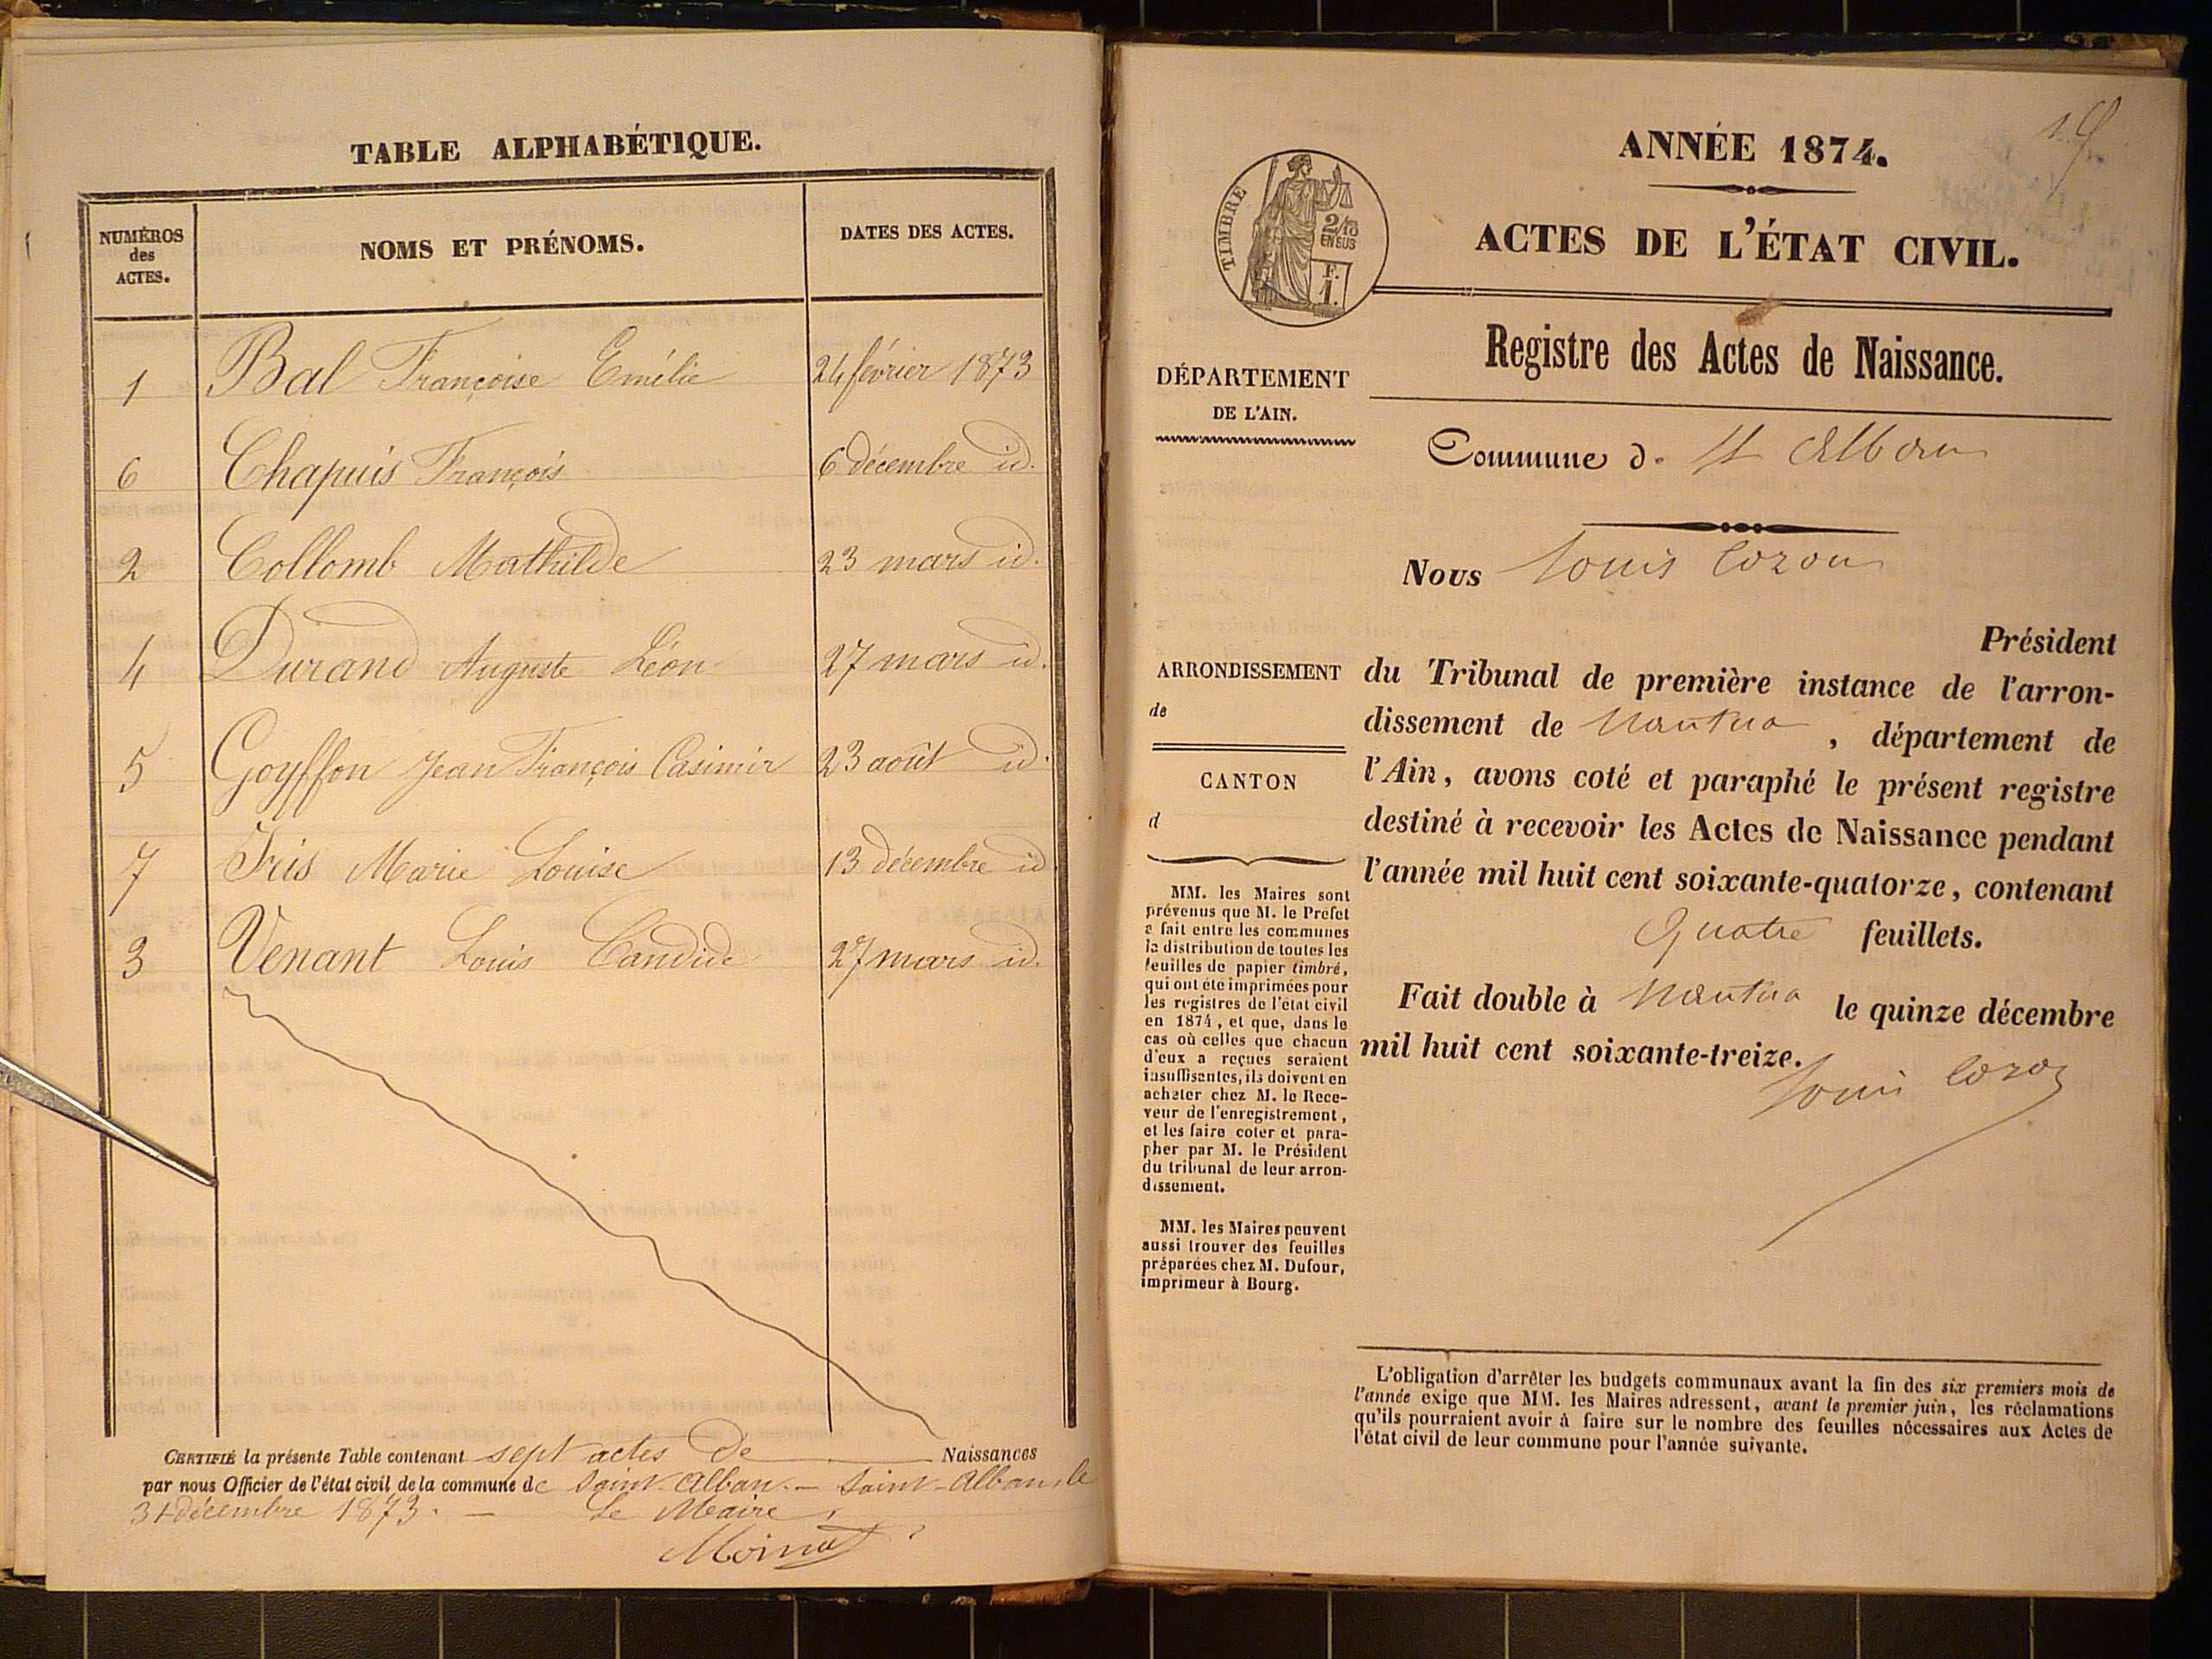 TABLE ALPHABÉTIQUE.
NUMÉROS des ACTES.
NOMS ET PRÉNOMS.
DATES DES ACTES.
1 Bal Françoise Emélie 24 février 1873
6 Chapuis François 6 décembre id.
2 Collomb Mathilde 23 mars id.
4 Durand Auguste Léon 27 mars id.
5 Goyffon Jean François Casimir 23 août id.
7 Iris Marie Louise 13 décembre id
3 Venant Louis Candide 27 mars id.
CERTIFIÉ la présente Table contenant sept actes de Naissances
par nous Officier de l'état civil de la commune de Saint-Alban. — Saint-Alban, le
31 décembre 1873. — Le Maire,
ANNÉE 1874.
TIMBRE
2/10
EN SUS
F.
1.
ACTES DE L'ÉTAT CIVIL.
Registre des Actes de Naissance.
DÉPARTEMENT
DE L'AIN.
Commune d. St Alban
Nous Louis Cozon
Président
ARRONDISSEMENT
de
CANTON
d
du Tribunal de première instance de l'arron-
dissement de Nantua, département de
l'Ain, avons coté et paraphé le présent registre
destiné à recevoir les Actes de Naissance pendant
l'année mil huit cent soixante-quatorze, contenant
quatre feuillets.
Fait double à Nantua le quinze décembre
mil huit cent soixante-treize.
Louis Cozon
MM. les Maires sont
prévenus que M. le Préfet
a fait entre les communes
la distribution de toutes les
feuilles de papier timbré,
qui ont été imprimées pour
les registres de l'état civil
en 1874, et que, dans le
cas où celles que chacun
d'eux a reçues seraient
insuffisantes, ils doivent en
acheter chez M. le Rece-
veur de l'enregistrement,
et les faire coter et para-
pher par M. le Président
du tribunal de leur arron-
dissement.
MM. les Maires peuvent
aussi trouver des feuilles
préparées chez M. Dufour,
imprimeur à Bourg.
L'obligation d'arrêter les budgets communaux avant la fin des six premiers mois de
l'année exige que MM. les Maires adressent, avant le premier juin, les réclamations
qu'ils pourraient avoir à faire sur le nombre des feuilles nécessaires aux Actes de
l'état civil de leur commune pour l'année suivante.